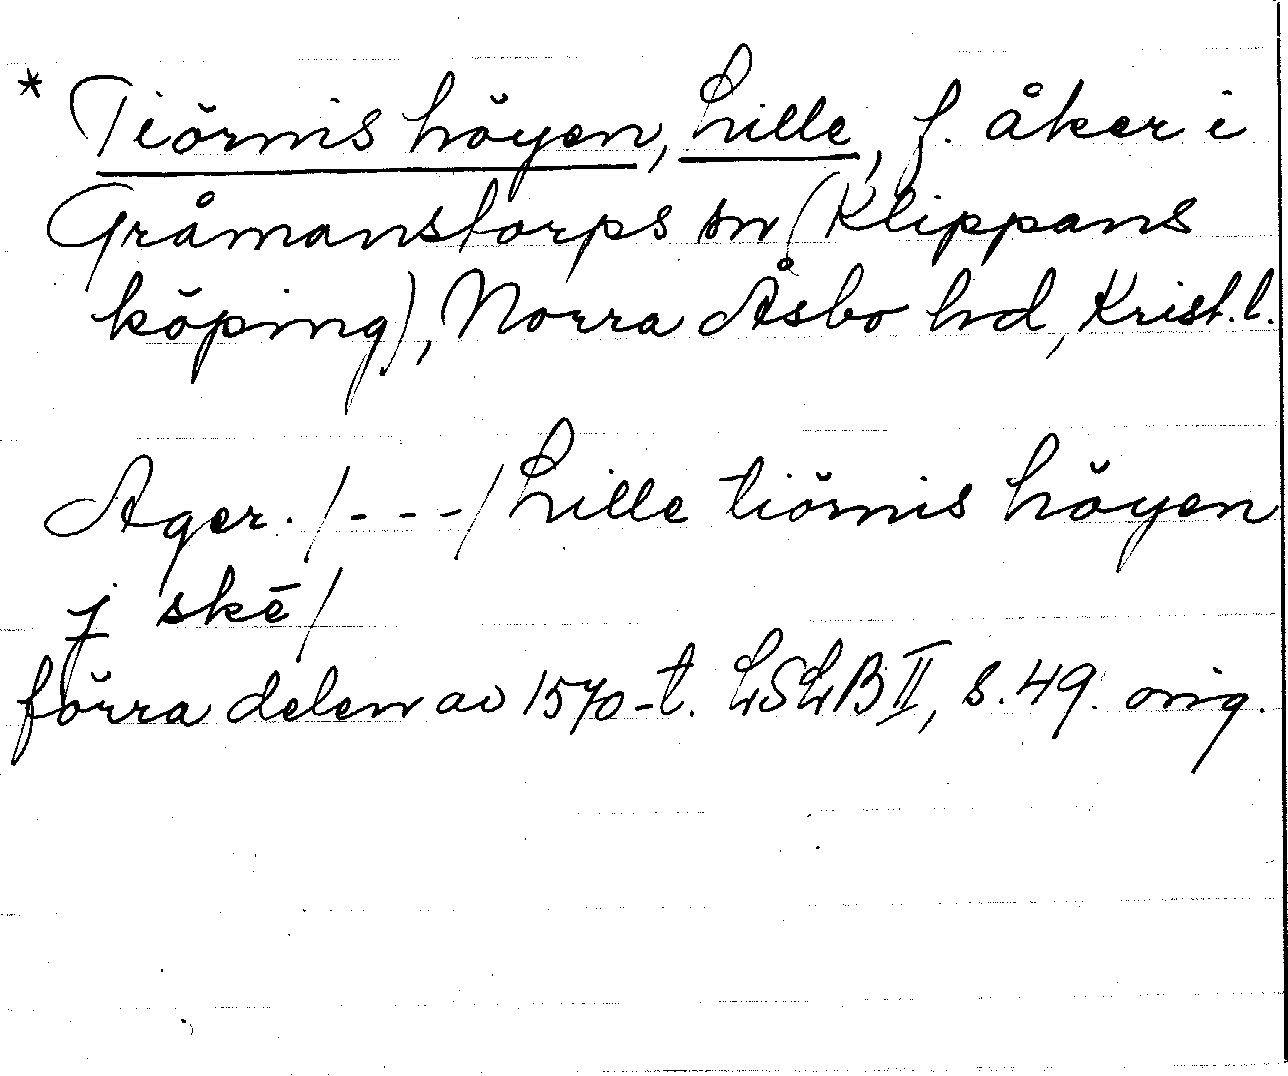 * Tiörnis höyen, Lille, f. åker i
Gråmanstorps sn (Klippans
köping), Norra Åsbo hd, Krist.l.
Ager. /---/ Lille tiörnis höyen
j skē/
förra delen av 1570-t. LSLB II, s. 49. orig.